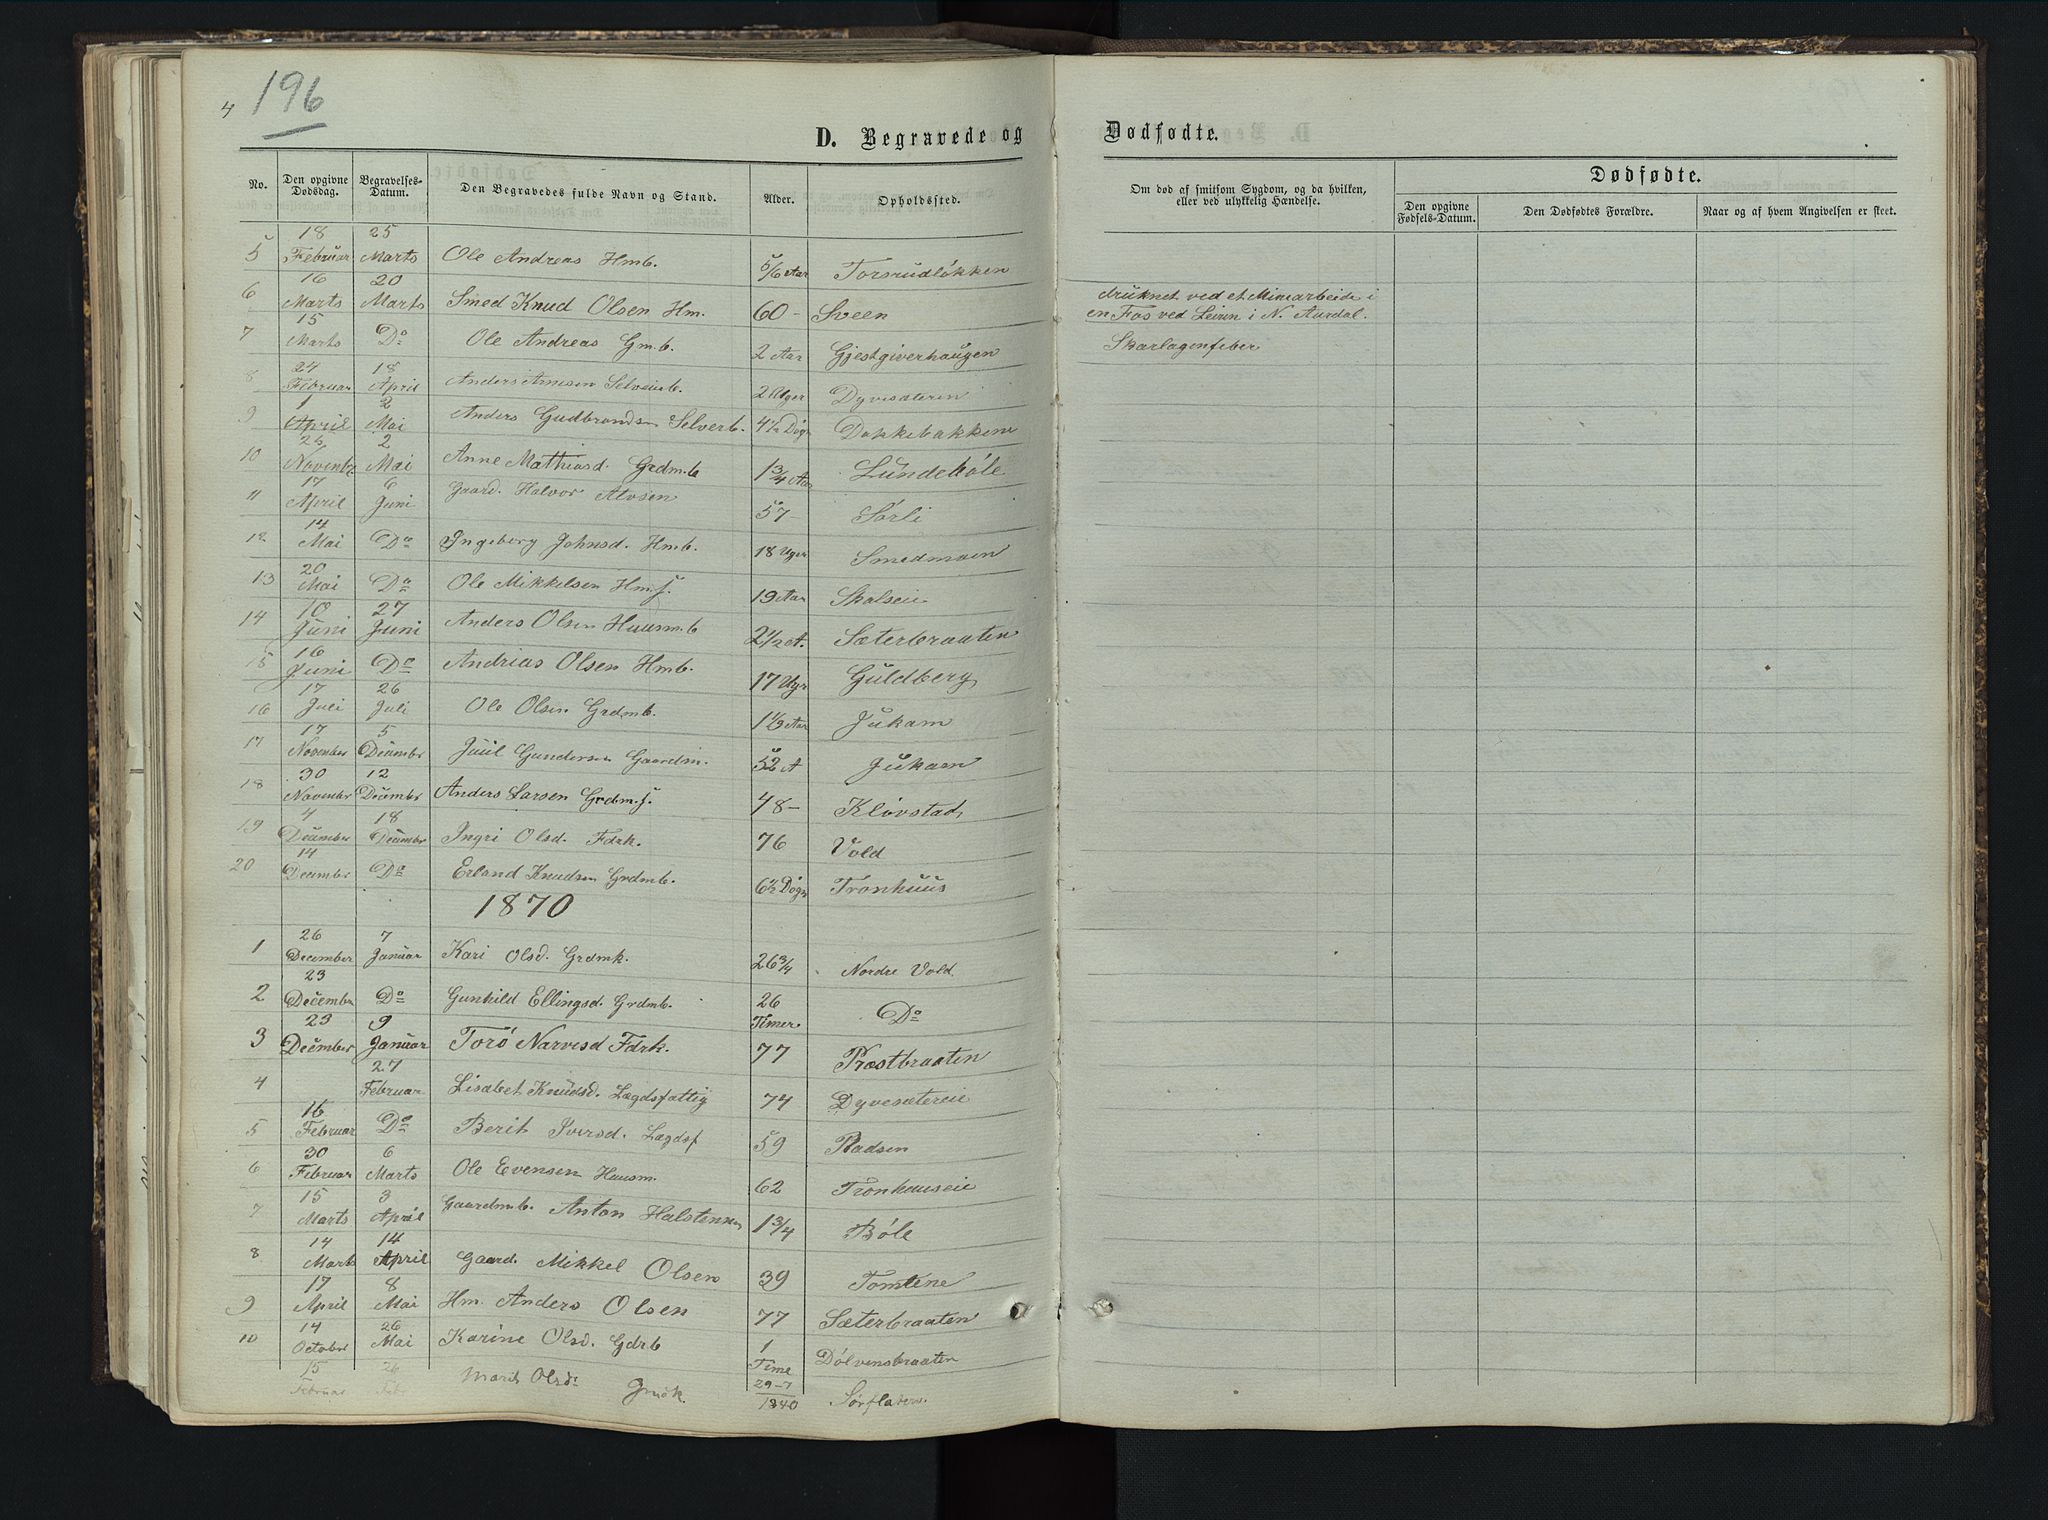 4 196
D. Begravede og Dødfødte.
No. Den opgivne Dødsdag. Begravelses-Datum. Den Begravedes fulde Navn og Stand. Alder. Opholdssted. Om død af smitsom Sygdom, og da hvilken, eller ved ulykkelig Hændelse. Dødfødte.
Den opgivne Fødsels-Datum. Den Dødfødtes Forældre. Naar og af hvem Angivelsen er skeet.
5 18 Februar 25 Marts Ole Andreas Hmb. 5/6 Aar Torsrudløkken
6 16 Marts 20 Marts Smed Knud Olsen Hm. 60 - Sveen druknet ved et Minearbeide i
en Fos ved Leirin i N. Aurdal.
7 15 Marts Do Ole Andreas Gmb. 2 Aar Gjestgiverhaugen Skarlagenfeber
8 24 Februar 18 April Anders Arnesen Selveierb. 2 Uger Dyvesæterin
9 1 April 2 Mai Anders Gudbrandsen Selverb. 4 1/2 Døgn Dokkebakkene
10 26 Novembr 2 Mai Anne Mathiasd. Grdmb 1 3/4 Aar Lundebøle
11 17 April 6 Juni Gaard. Halvor Alvsen 57 - Sørli
12 14 Mai Do Ingeborg Johnsd. Hmb. 18 Uger Smedmoen
13 20 Mai Do Ole Mikkelsen Hmf. 19 Aar Skalseie
14 10 Juni 27 Juni Anders Olsen Huusmb 2 1/2 A. Sæterbraaten
15 16 Juni Do Andrias Olsen Hmb. 17 Ugr Guldberg
16 17 Juli 26 Juli Ole Olsen Grdmb. 1 1/3 Aar Jukam
17 17 November 5 Decembr Juul Gundersen Gaardm. 52 A Jukam
18 30 Novembr 12 Decembr Anders Larsen Grdmf. 48 - Kløvstad
19 7 December 18 Decembr Ingri Olsd. Fdrk. 76 Vold
20 14 December Do Erland Knudsen Grdmb. 6 1/2 Døgn Tronhuus
1870
1 26 December 7 Januar Kari Olsd. Grdmk. 26 3/4 Nordre Vold
2 23 December Do Gunhild Ellingsd. Grdmb. 26 Timer Do
3 23 December 9 Januar Torø Narvesd Fdrk. 77 Præstbraaten
4 27 Februar Lisabet Knudsd. Lægdsfattig 74 Dyvesætereie
5 16 Februar Do Berit Iversd. Lægdsf 59 Radsen
6 30 Februar 6 Marts Ole Evensen Huusm. 62 Tronhuuseie
7 15 Marts 3 April Gaardmb. Anton Halstensen 1 3/4 Bøle
8 14 Marts 14 April Gaard. Mikkel Olsen 39 Tomlene
9 17 April 8 Mai Hm. Anders Olsen 77 Sæterbraaten
10 14 October 26 Mai Karine Olsd. Gdrb 1 Time Dølvensbraaten
15 Februar 26 Febr Marit Olsdr Gmbk 29-7 1840 Sørflaten.